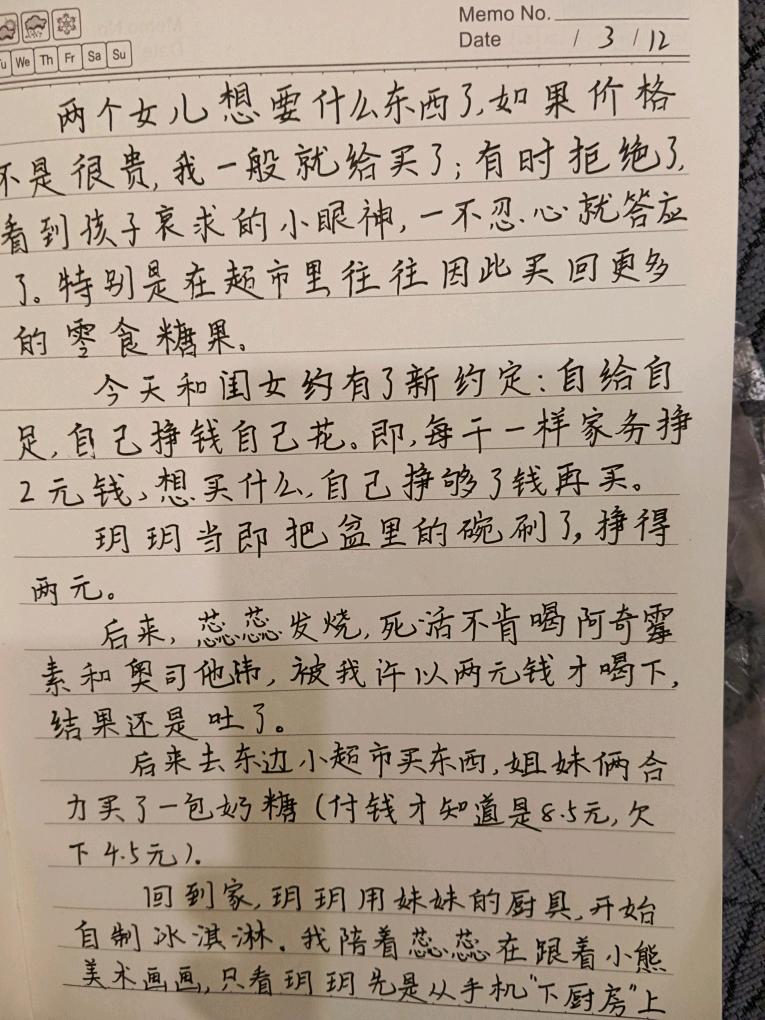 Memo No.
Date / 3 / 12
We Th Fr Sa Su
两个女儿想要什么东西了,如果价格
不是很贵,我一般就给买了;有时拒绝了,
看到孩子哀求的小眼神,一不忍心就答应
了。特别是在超市里往往因此买回更多
的零食糖果。
今天和闺女约有了新约定:自给自
足,自己挣钱自己花。即,每干一样家务挣
2元钱、想买什么,自己挣够了钱再买。
玥玥当即把盆里的碗刷了,挣得
两元。
后来,蕊蕊发烧,死活不肯喝阿奇霉
素和奥司他韦,被我许以两元钱才喝下,
结果还是吐了。
后来去东边小超市买东西,姐妹俩合
力买了一包奶糖(付钱才知道是8.5元,欠
下4.5元)。
回到家,玥玥用妹妹的厨具,开始
自制冰淇淋。我陪着蕊蕊在跟着小熊
美术画画,只看玥玥先是从手机"下厨房"上